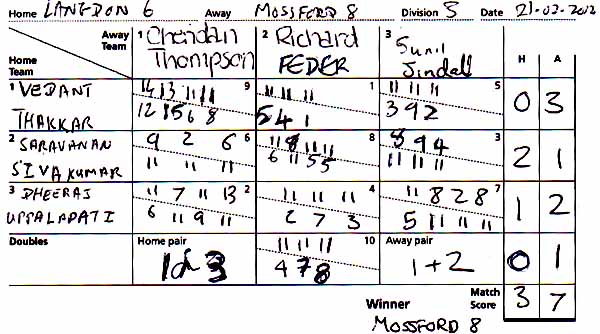 Home LANGDON 6 Away MOSSFORD 8 Division 5 Date 21-02-2012
Away Team 1 Thompson 2 Richard FEDER 3 Sunil Jindall H A
Home Team
1 VEDANT THAKKAR 9 1 5 0 3
14 13 11 11 11 11 11 11 11 11
12 15 6 8 5 4 1 3 9 2
2 SARAVANAN SIVAKUMAR 6 8 3 2 1
9 2 6 11 8 11 11 8 9 4
11 11 11 6 11 5 5 11 11 11
3 DHEERAJ UPPALAPATI 2 4 7 1 2
11 7 11 13 11 11 11 11 8 2 8
6 11 9 11 2 7 3 5 11 11 11
Doubles Home pair 10 Away pair 0 1
11 11 11
1 3 4 7 8 1+2
Winner Match Score 3 7
MOSSFORD 8